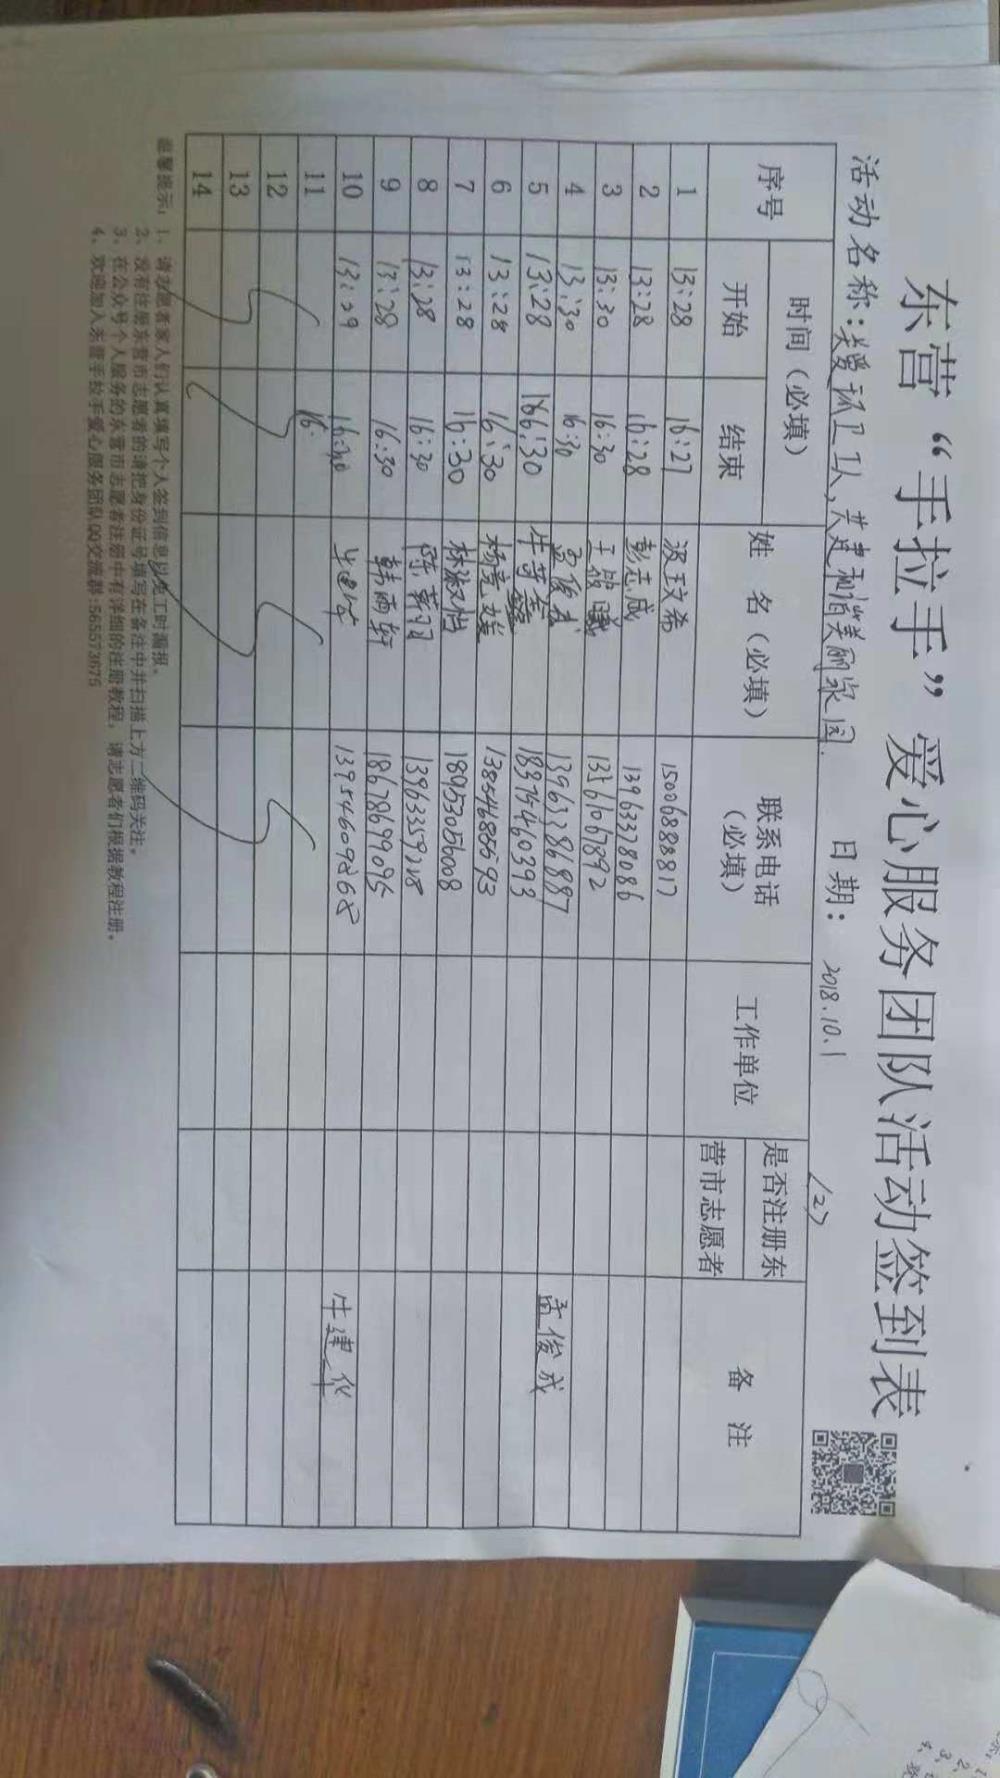 东营“手拉手”爱心服务团队活动签到表
活动名称：关爱环卫工人，共建和谐美丽家园. 日期： 2018.10.1 (2)
序号 时间（必填） 姓 名（必填） 联系电话（必填） 工作单位 是否注册东营市志愿者 备 注
开始 结束
1 13:28 16:27 15006888817
2 13:28 16:28 彭志成 13963378086
3 13:30 16:30 王 13561067892
4 13:30 16:30 孟俊成 13963386887
5 13:28 16:30 牛 18375460393 孟俊成
6 13:28 16:30 杨 13854688593
7 13:28 16:30 林淑 18953056008
8 13:28 16:30 陈 13963359218
9 13:28 16:30 韩雨轩 18678699095
10 13:29 16:30 牛建华 牛建华
11 16:
12
13
14
温馨提示：1、请志愿者家人们认真填写个人签到信息以免工时漏报。
2、没有注册东营市志愿者的请把身份证号填写在备注中并扫描上方二维码关注。
3、在公众号个人服务的东营市志愿者注册中有详细的注册教程，请志愿者们根据教程注册。
4、欢迎加入东营手拉手爱心服务团队QQ交流群:565573675